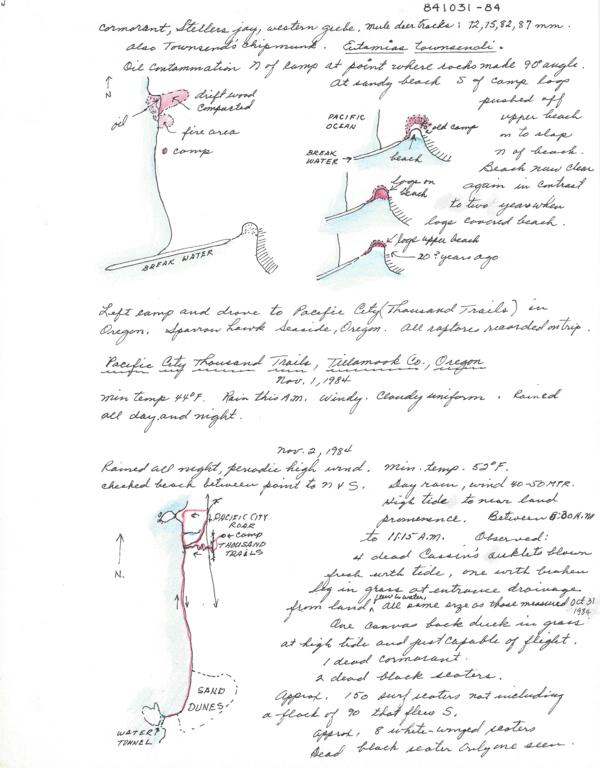 841031-84
cormorant, Stellers jay, western grebe. Mule deer tracks: 72, 75, 82, 87 mm.
also Townsends chipmunk. Eutamias townsendi.
Oil contammation N of camp at point where rocks make 90° angle.
At sandy beach S of camp logs
pushed off
upper beach
on to slap
N of beach.
Beach now clear
again in contrast
to two years when
logs covered beach.
N
drift wood
compacted
oil
fire area
camp
BREAK WATER
PACIFIC
OCEAN
old camp
BREAK
WATER
beach
logs on
beach
logs upper beach
20? years ago
Left camp and drove to Pacific City (Thousand Trails) in
Oregon. Sparrow hawk Seaside, Oregon. All raptores recorded on trip.
Pacific City Thousand Trails, Tillamook Co., Oregon
Nov. 1, 1984
Min temp 44°F. Rain this A.M. Windy. Cloudy uniform. Rained
all day and night.
Nov. 2, 1984
Rained all night, periodic high wind. Min. temp. 52°F.
checked beach between point to N & S. Day rain, wind 40-50 MPR.
High tide to near land
promenence. Between 8:30 A.M
to 11:15 A.M. Observed:
4 dead Cassin's auklets blown
fresh with tide, one with broken
leg in grass at entrance drainage
from land, flew in water, All same size as those measured Oct 31
1984
One canvas back duck in grass
at high tide and just capable of flight.
1 dead cormorant.
2 dead black scoters.
Approx. 150 surf scoters not including
a flock of 90 that flew S.
Approx. 8 white-winged scoters
Dead black scoter only one seen.
PACIFIC CITY
ROAD
CAMP
THOUSAND
TRAILS
N.
SAND
DUNES
WATER?
TUNNEL